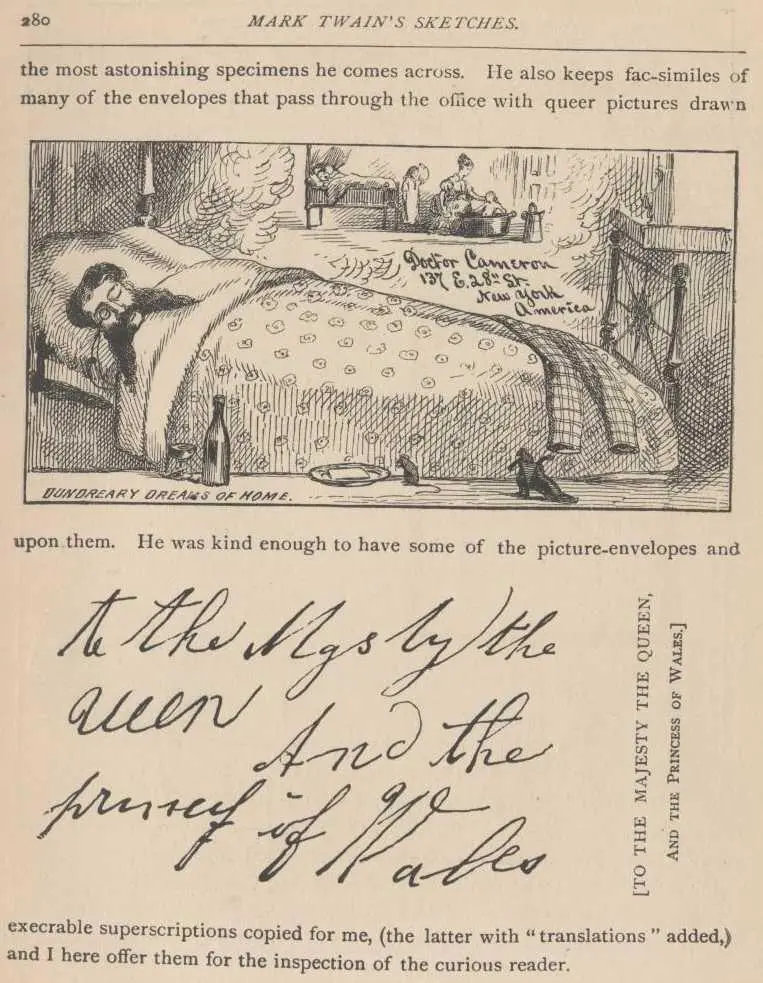 280 MARK TWAIN'S SKETCHES.
the most astonishing specimens he comes across. He also keeps fac-similes of
many of the envelopes that pass through the office with queer pictures drawn
Doctor Cameron
137 E. 28th St.
New York
America
DUNDREARY DREAMS OF HOME.
upon them. He was kind enough to have some of the picture-envelopes and
to the Mgs ty the
queen And the
of Wales
[TO THE MAJESTY THE QUEEN,
AND THE PRINCESS OF WALES.]
execrable superscriptions copied for me, (the latter with "translations" added,)
and I here offer them for the inspection of the curious reader.